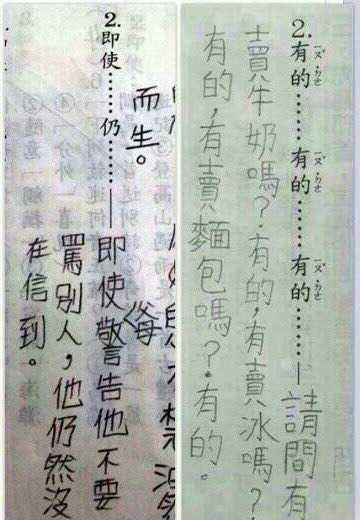 而生。
2.即使……仍……——即使警告他不要
罵別人,他仍然沒
在信到。
2.有的……有的……有的……—請問有
賣牛奶嗎?有的,有賣冰嗎?
有的,有賣麵包嗎?有的。